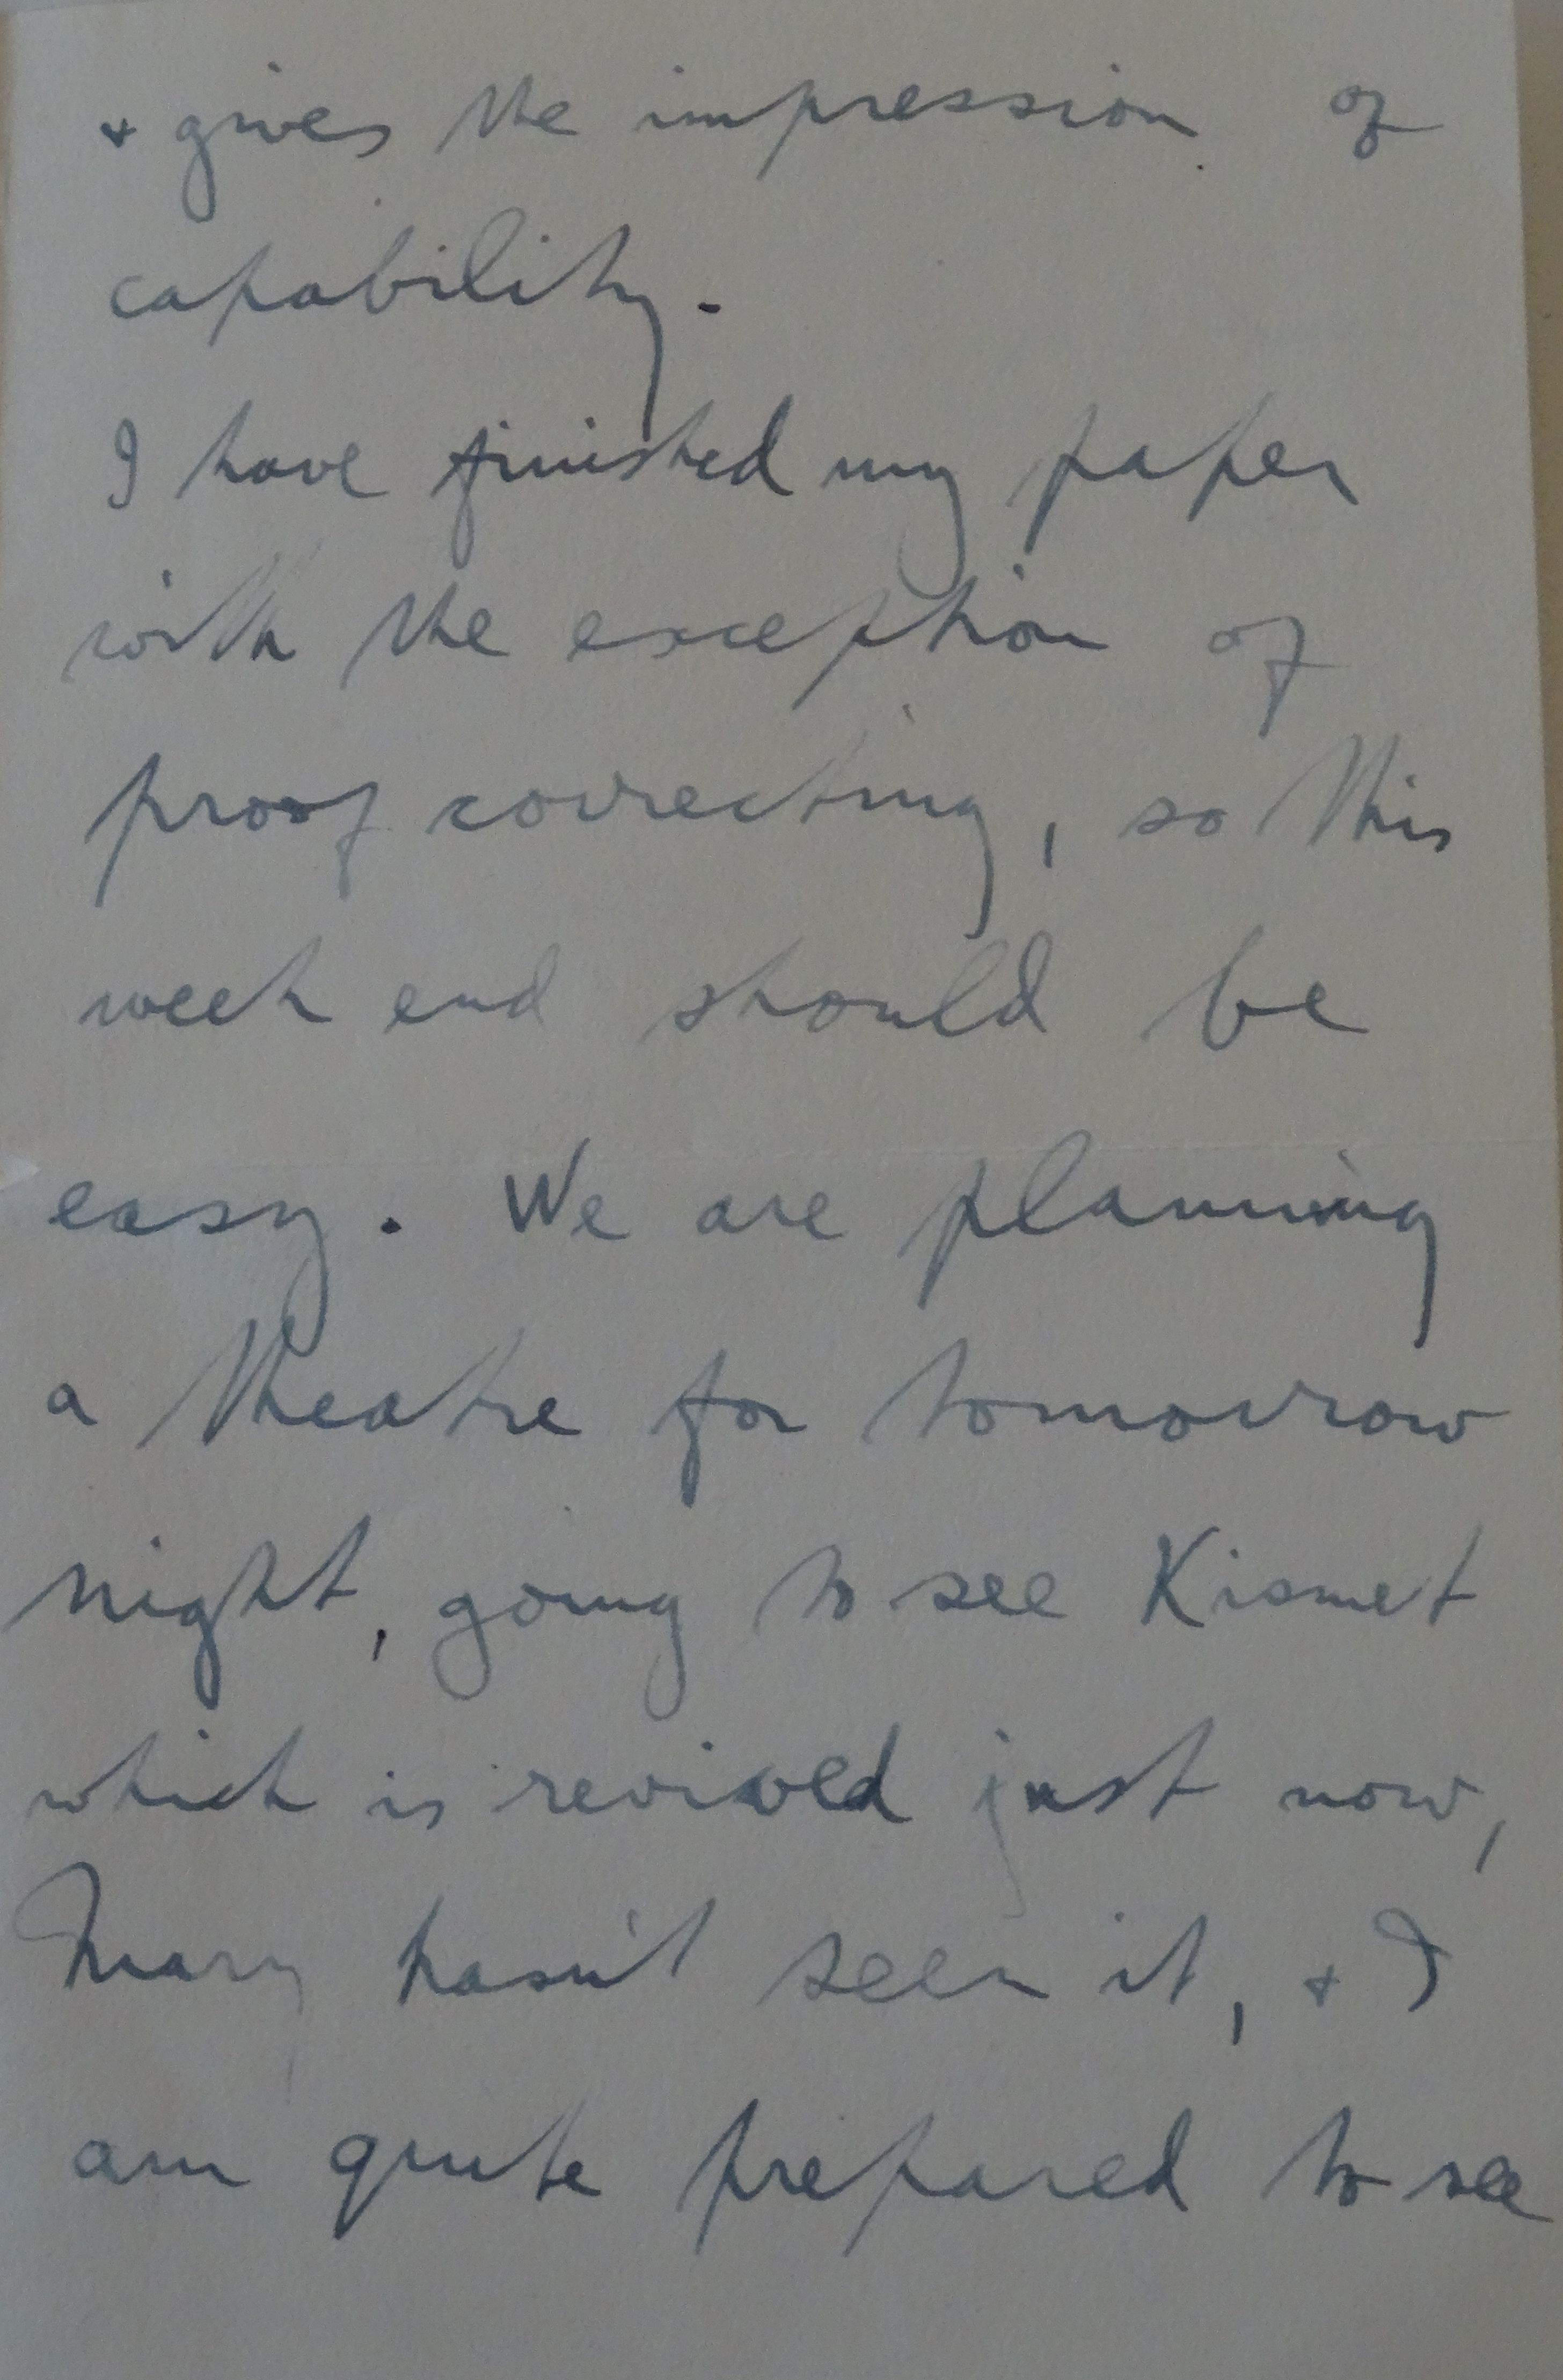 + gives the impression of
capability.
I have finished my paper
with the exception of
proof correcting, so this
week end should be
easy. We are planning
a theatre for tomorrow
night, going to see Kismet
which is revived just now,
Mary hasn't seen it, + I
am quite prepared to see